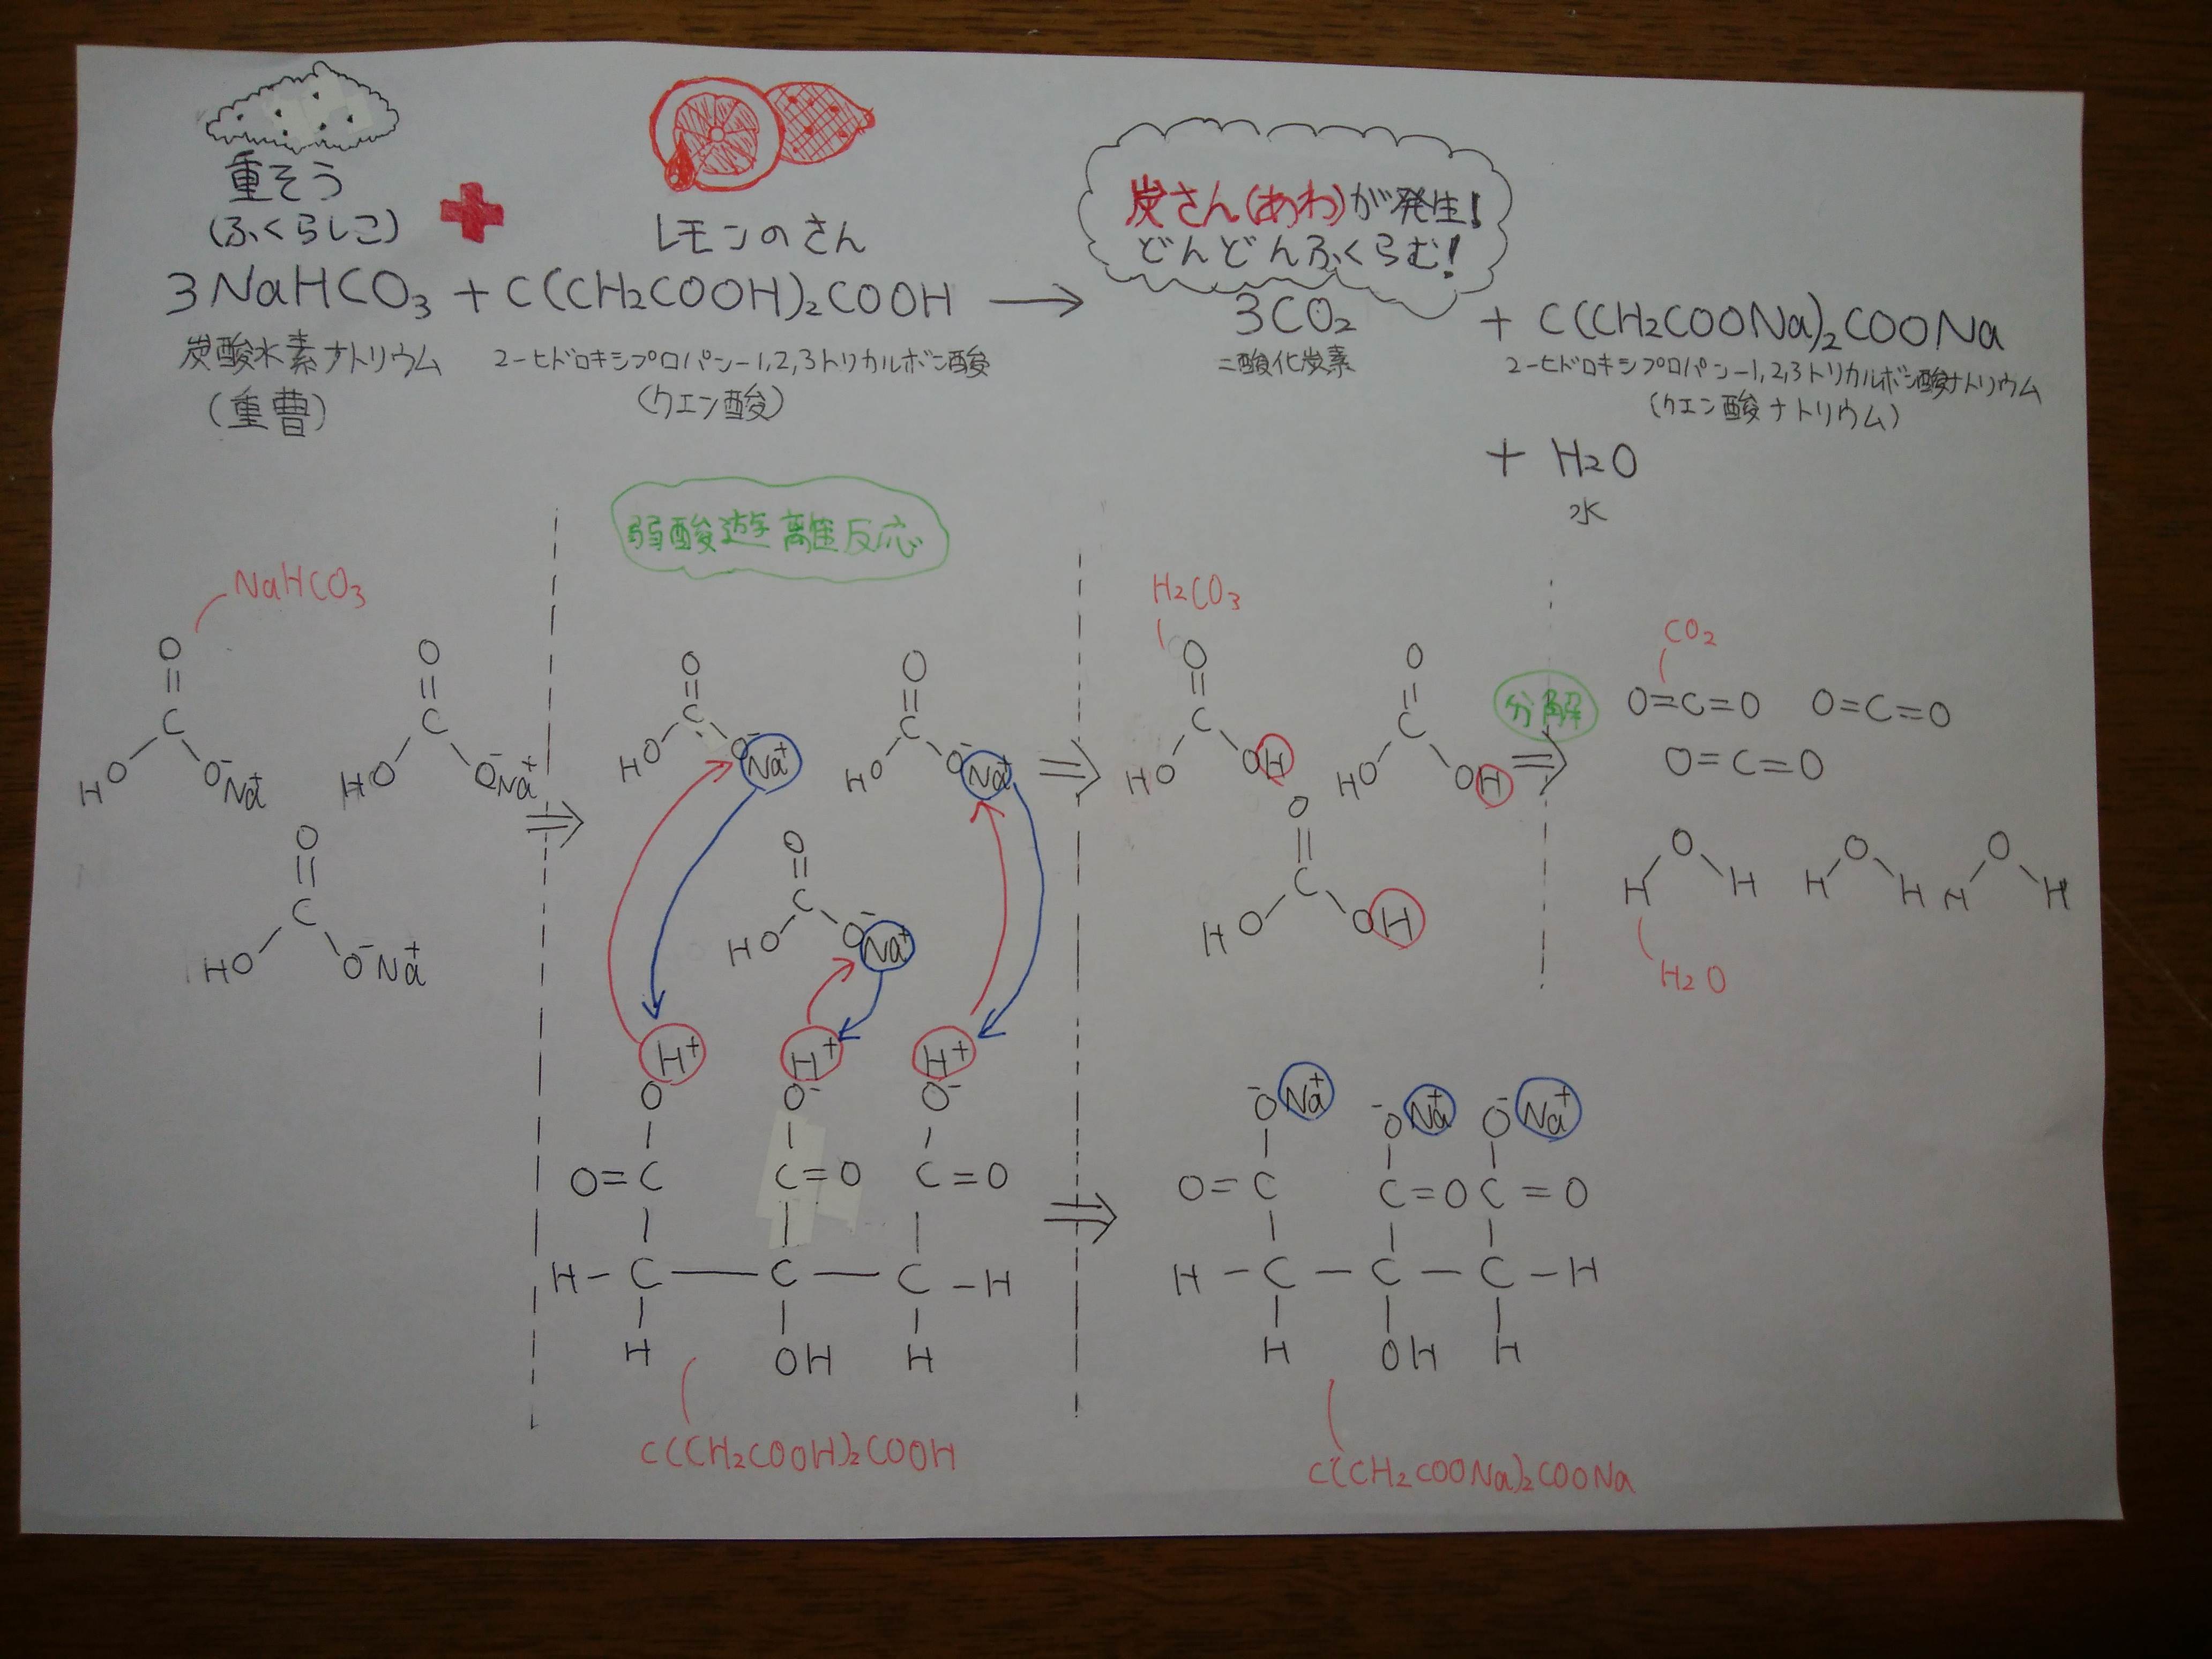 重そう
(ふくらしこ)
レモンのさん
炭さん(あわ)が発生!
どんどんふくらむ!
3NaHCO₃ + C(CH₂COOH)₂COOH → 3CO₂ + C(CH₂COONa)₂COONa
炭酸水素ナトリウム
(重曹)
2-ヒドロキシプロパン-1,2,3トリカルボン酸
(クエン酸)
二酸化炭素
2-ヒドロキシプロパン-1,2,3トリカルボン酸ナトリウム
(クエン酸ナトリウム)
+ H₂O
水
弱酸遊離反応
NaHCO₃
O
=
C
HO O⁻Na⁺
O
=
C
HO O⁻Na⁺
O
=
C
HO O⁻Na⁺
O
=
C
HO O⁻Na⁺
O
=
C
HO O⁻Na⁺
O
=
C
HO O⁻Na⁺
H⁺ H⁺ H⁺
O O⁻ O⁻
O=C C=O C=O
H-C-C-C-H
H OH H
C(CH₂COOH)₂COOH
H₂CO₃
O
=
C
HO OH
O
=
C
HO OH
O
=
C
HO OH
分解
CO₂
O=C=O O=C=O
O=C=O
O O O
H H H H H H
H₂O
⁻ONa⁺ ⁻ONa⁺ O⁻Na⁺
O=C C=O C=O
H-C-C-C-H
H OH H
C(CH₂COONa)₂COONa